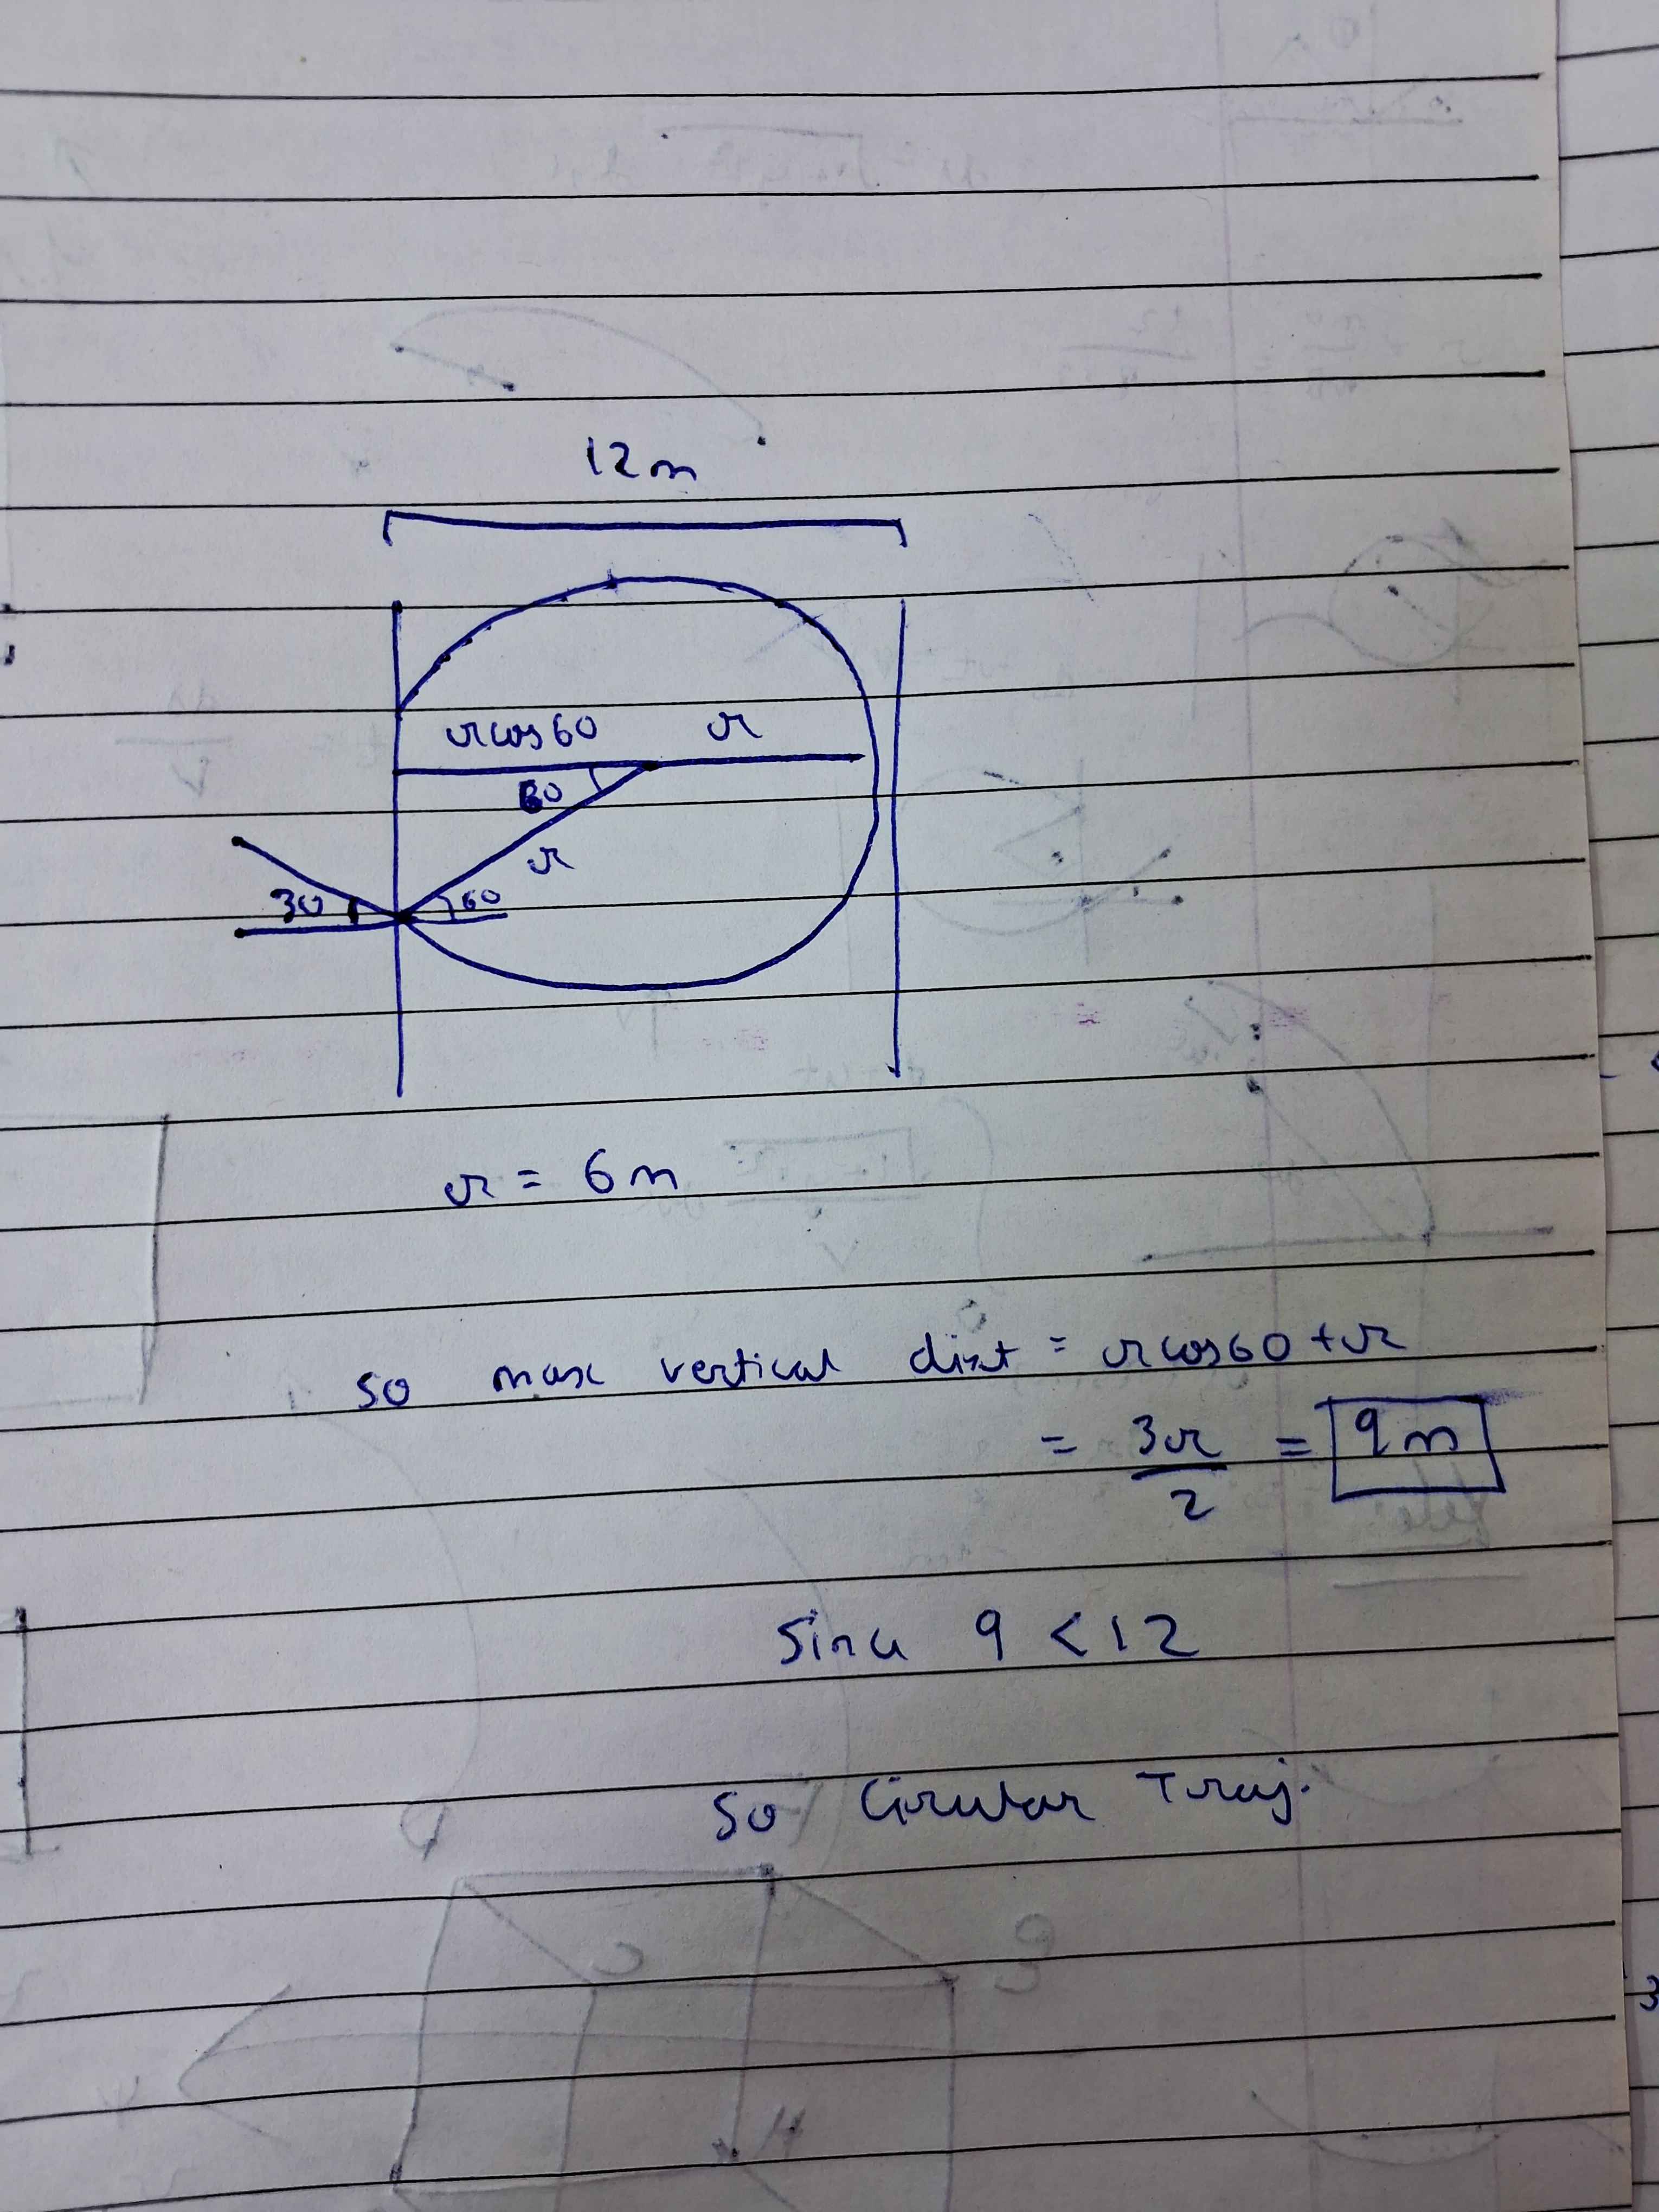 12m
rcos60 r
60
r
30 60
r = 6m
so max vertical dist = rcos60 + r
= 3r/2 = 9m
Sinu 9 < 12
so Cirular Traj.